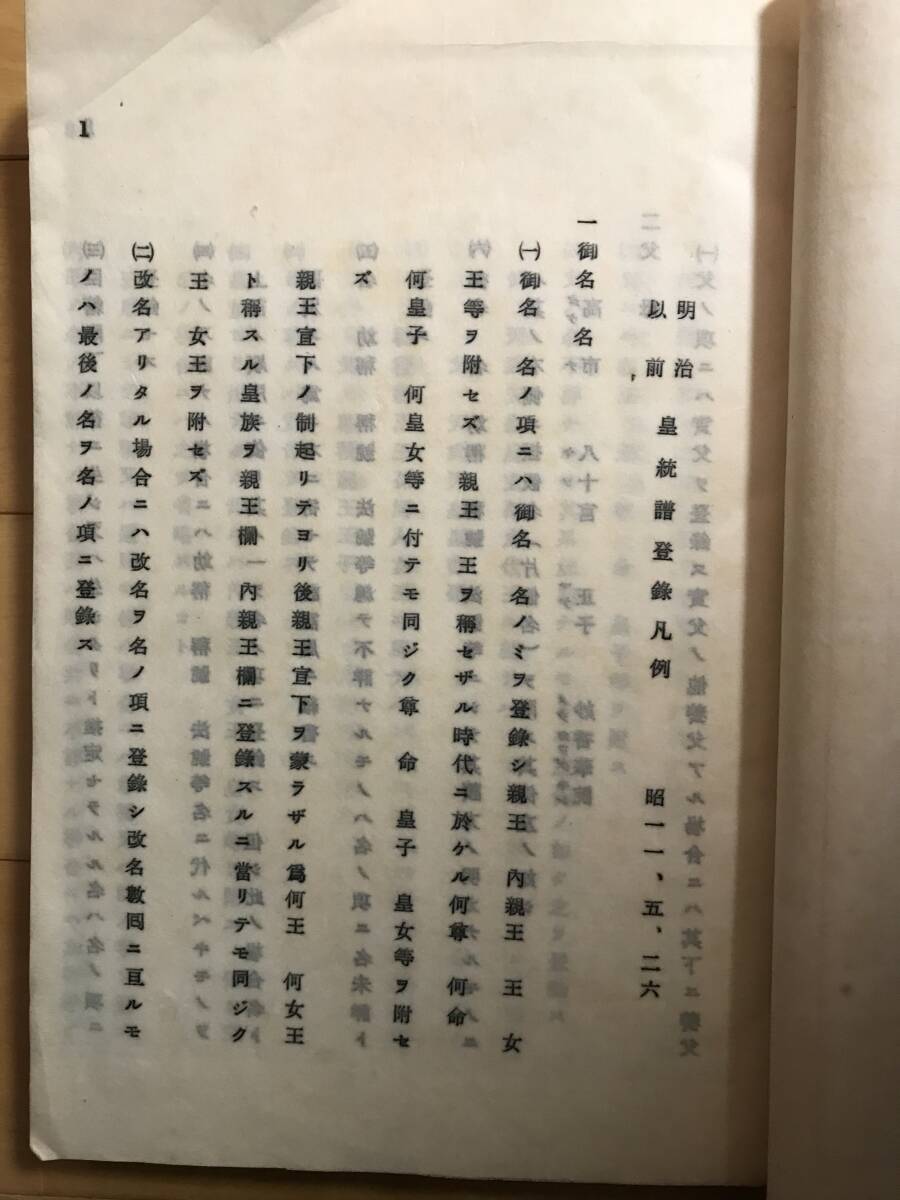 明治
以前 皇統譜登錄凡例 昭一一、五、二六
一御名名
㈠御名ノ名ノ項ニハ御名名ノミヲ登錄シ親王 內親王 王 女
王等ヲ附セズ親王 王ヲ稱セザル時代ニ於ケル何尊 何命
何皇子 何皇女等ニ付テモ同ジク尊 命 皇子 皇女等ヲ附セ
ズ
親王宣下ノ制起リテヨリ後親王宣下ヲ蒙ラザル爲何王 何女王
ト稱スル皇族ヲ親王欄一內親王欄ニ登錄スルニ當リテモ同ジク
王 女王ヲ附セズ
㈡改名アリタル場合ニハ改名ヲ名ノ項ニ登錄シ改名數囘ニ亘ルモ
ノハ最後ノ名ヲ名ノ項ニ登錄ス
1